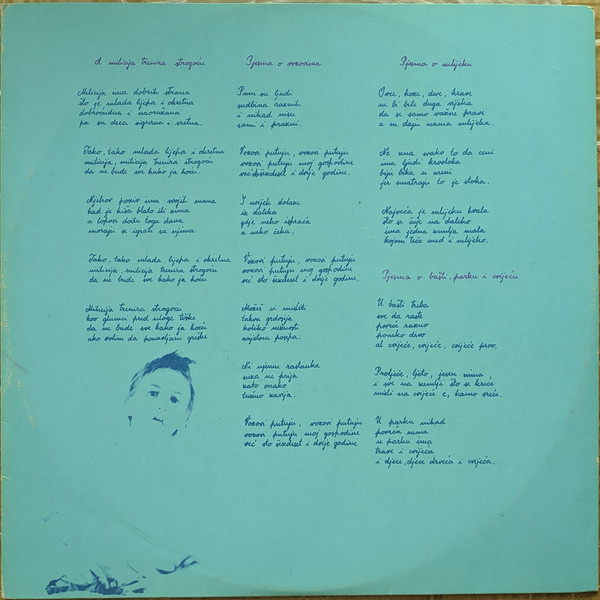 A milicija trenira strogoću
Milicija ima dobrih strana
što je mlada lijepa i okretna
dobroćudna i naoružana
pa su deca sigurna i sretna.
Tako, tako mlada lijepa i okretna
milicija, milicija trenira strogoću
da ne bude sve kako ja hoću.
Njihov poziv ima svojih mana
kad je kiša blato ili zima
a lopovi dođu toga dana
moraju se igrati sa njima
Tako, tako, mlada, lijepa i okretna
milicija, milicija trenira strogoću
da ne bude sve kako ja hoću
Milicija trenira strogoću
kao glumci pred uloge teške
da ne bude sve kako ja hoću
ako volim da ponavljam greške
Pjesma o vozovima
Puni su ljudi
sudbina raznih
i nikad nisu
sami i prazni.
Vozovi putuju, vozovi putuju
vozovi putuju moj gospodine
već sto šezdeset i dvije godine.
I uvijek dolaze
iz daleka
gdje neko ispraća
a neko čeka.
Vozovi putuju, vozovi putuju
vozovi putuju moj gospodine
već sto šezdeset i dvije godine.
Možeš li misliti
takva grdosija
koliko nežnosti
svijetom posija.
Ni njemu rastanka
suza ne prija
zato onako
tužno zavija.
Vozovi putuju, vozovi putuju
vozovi putuju moj gospodine
već sto šezdeset i dvije godine
Pjesma o mlijeku
Ovce, koze, deve, krave
ne bi bile duga vijeka
da se samo vazne prave
a ne daju nama mlijeka.
Ne zna svako to da ceni
ima ljudi krvoloka
biju bika u areni
jer smatraju to je stoka.
Najveća je mlijeku hvala
što se čuje na daleko
ima jedna zemlja mala
kojom teče med i mlijeko.
Pjesma o bašti, parku i cvijeću
U bašti treba
sve da raste
povrće razno
poneko drvo
al cvijeće, cvijeće, cvijeće prvo.
Proljeće, ljeto, jesen zima
i sve na zemlji što se kreće
misli na cvijeće e, kamo sreće.
U parku nikad
povrća nema
u parku ima
trave i cvijeća
i djece, djece drveća i cvijeća.